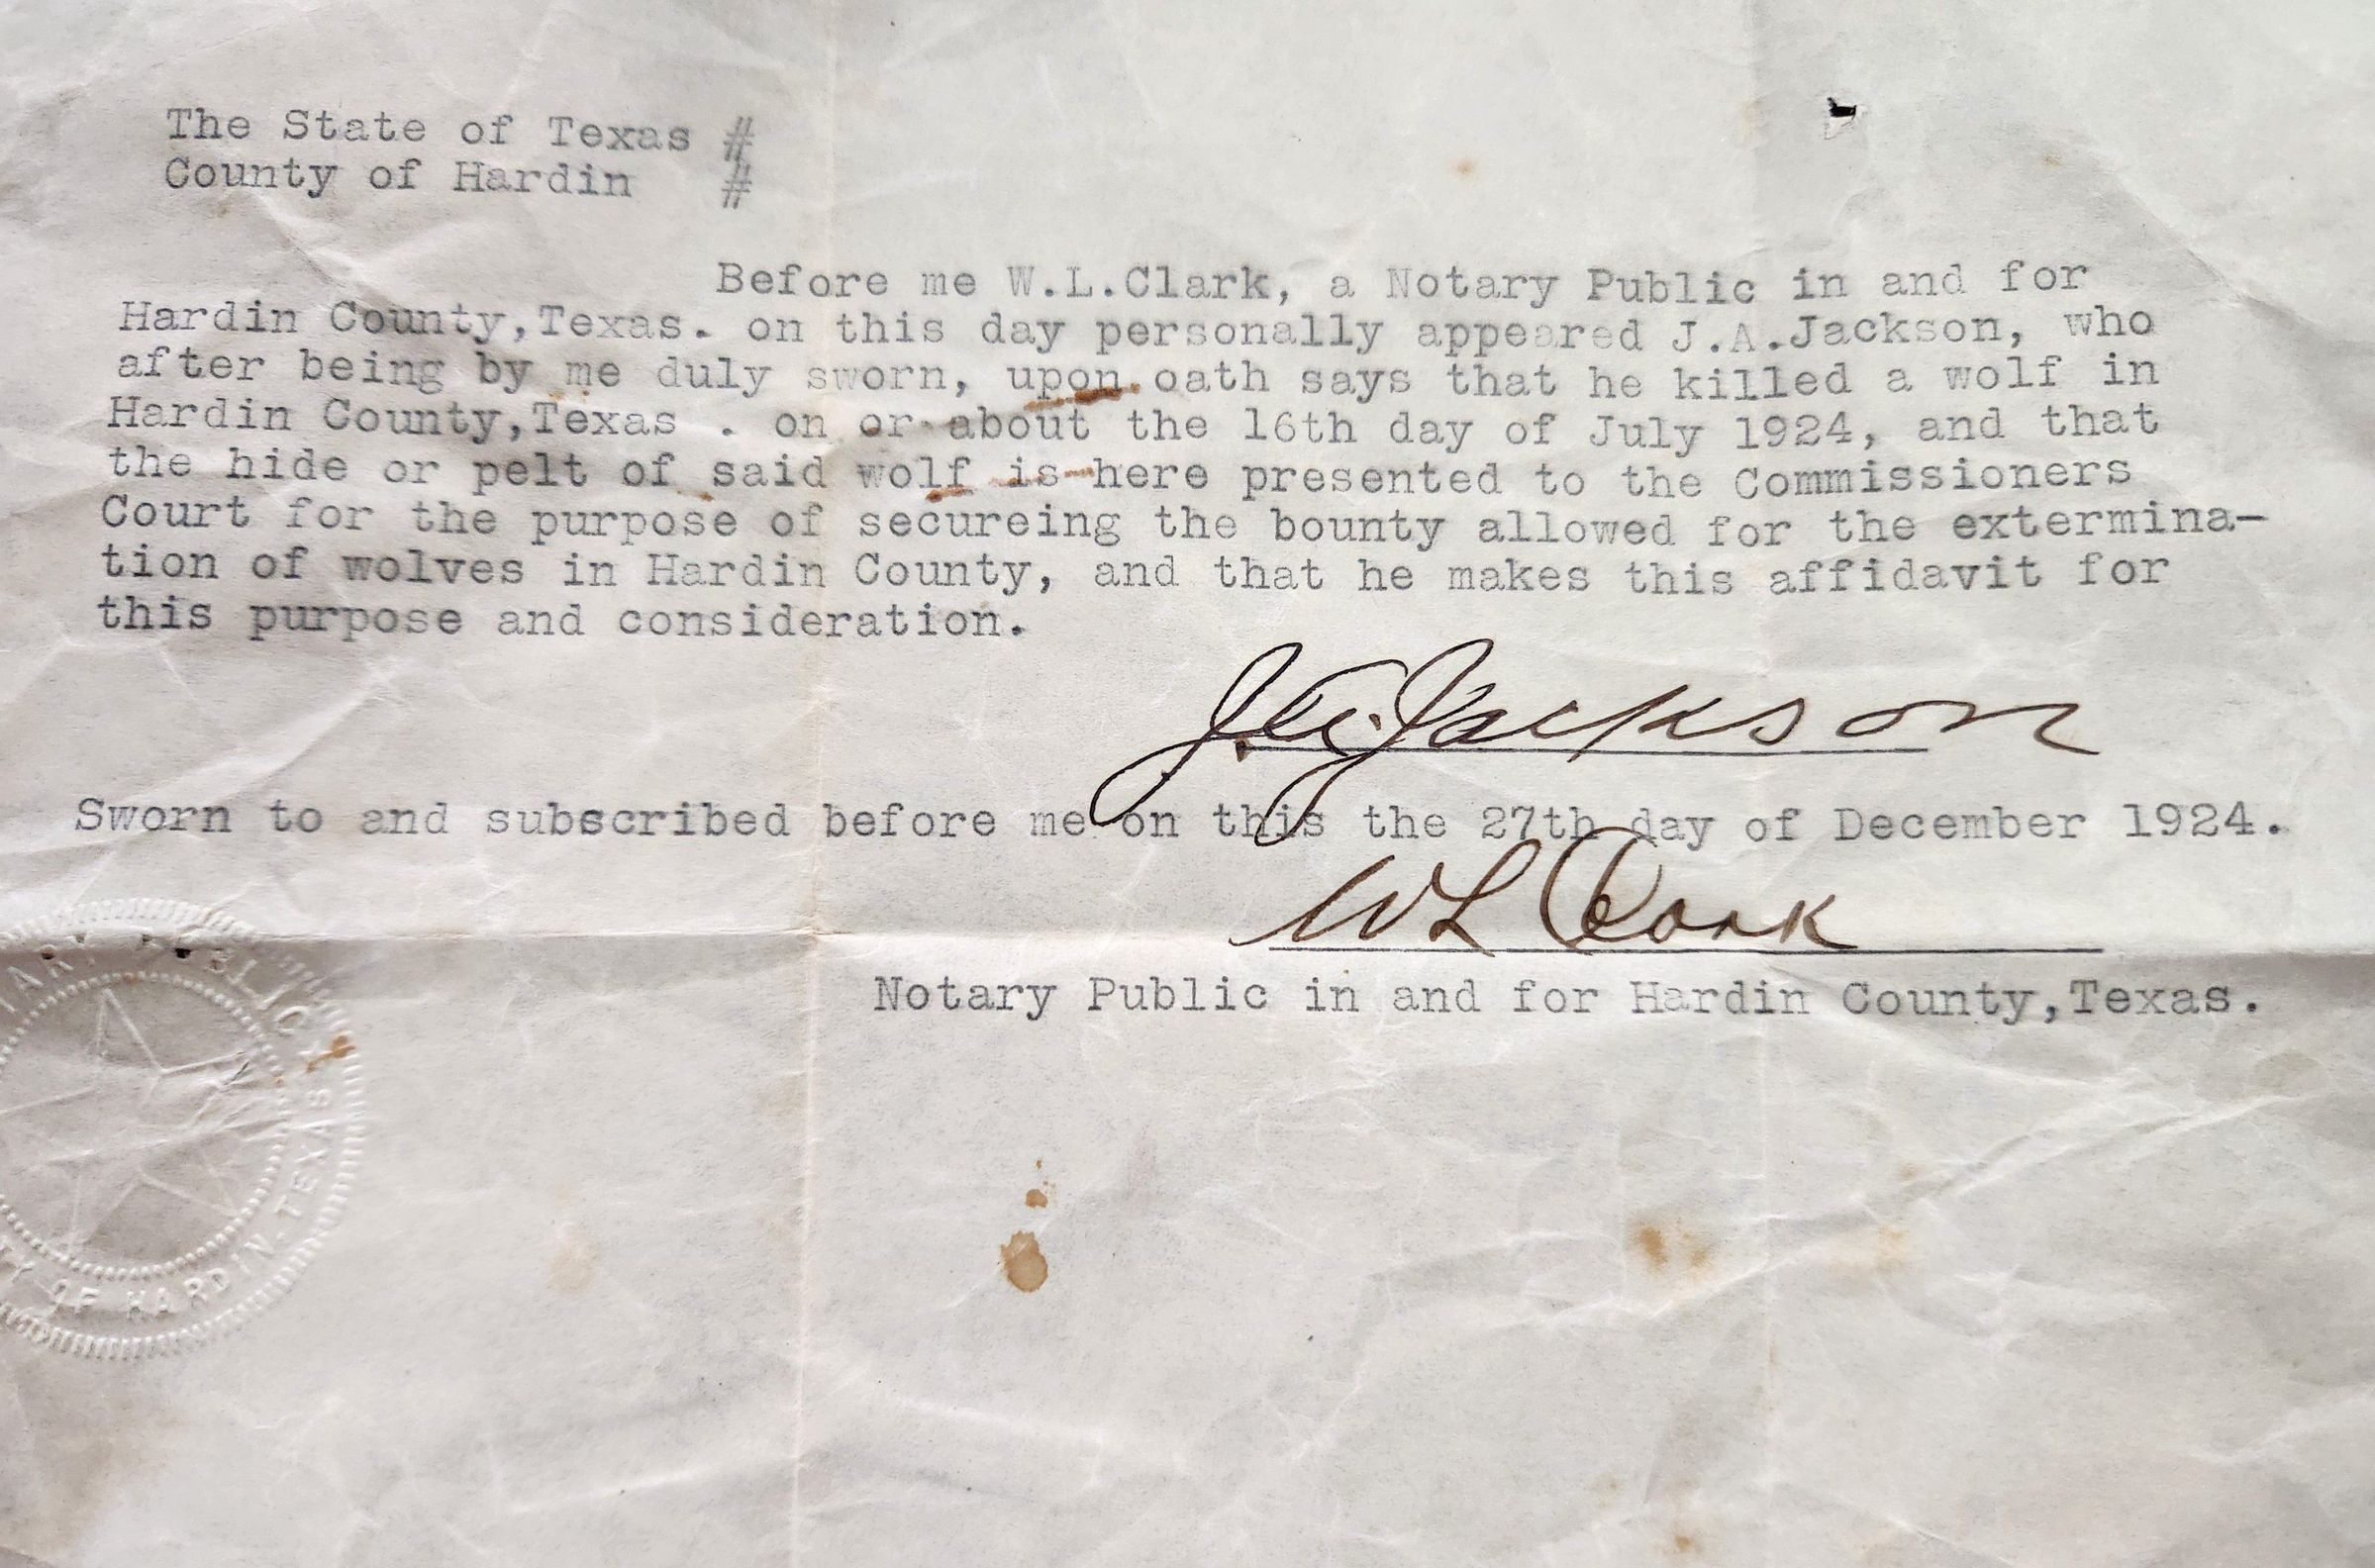 The State of Texas #
County of Hardin #
Before me W.L.Clark, a Notary Public in and for
Hardin County,Texas. on this day personally appeared J.A.Jackson, who
after being by me duly sworn, upon oath says that he killed a wolf in
Hardin County,Texas . on or about the 16th day of July 1924, and that
the hide or pelt of said wolf is here presented to the Commissioners
Court for the purpose of secureing the bounty allowed for the extermina-
tion of wolves in Hardin County, and that he makes this affidavit for
this purpose and consideration.
J.A. Jackson
Sworn to and subscribed before me on this the 27th day of December 1924.
W L Clark
Notary Public in and for Hardin County,Texas.
TARY PUBLIC
Y OF HARDIN. TEXAS